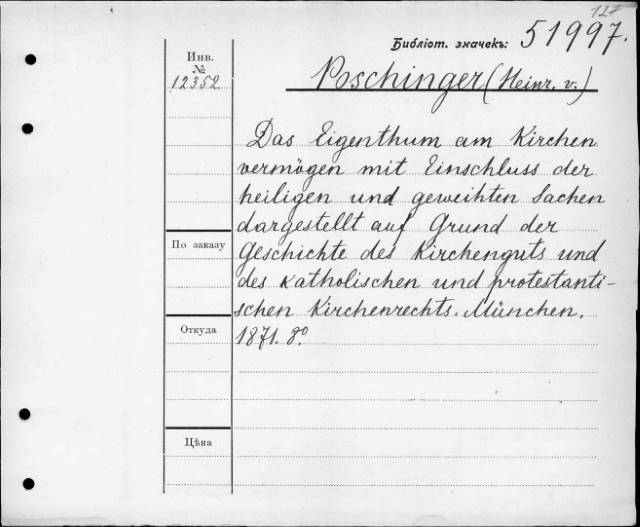 127
Библіот. значекъ: 51997.
Инв.
№
12352.
Poschinger (Heinr. v.)
Das Eigenthum am Kirchen
vermögen mit Einschluss der
heiligen und geweihten Sachen
dargestellt auf Grund der
Geschichte des Kirchenguts und
des katholischen und protestanti-
schen Kirchenrechts. München.
1871. 8º
По заказу
Откуда
Цѣна